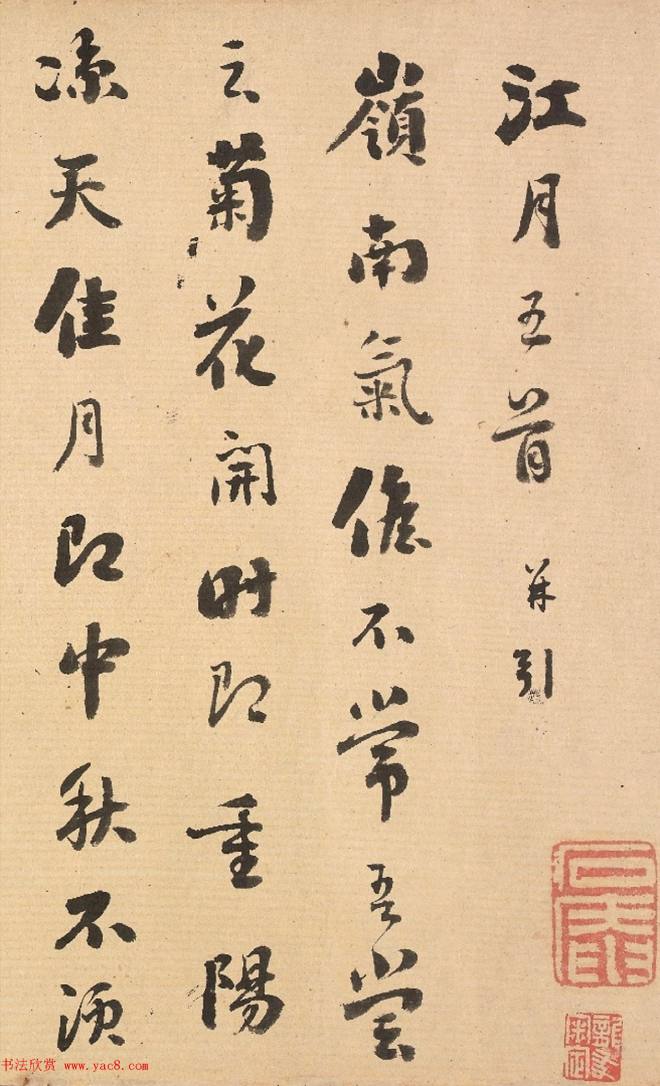 江月五首 并引
嶺南氣候不常吾嘗
云菊花開時即重陽
涼天佳月即中秋不須
书法欣赏 www.yac8.com